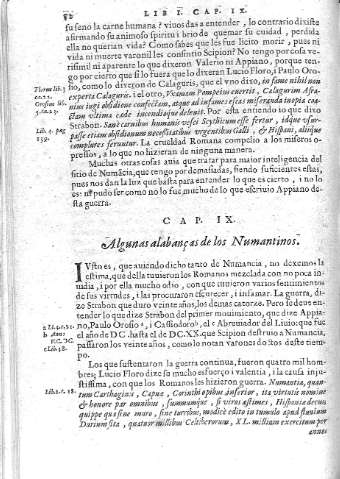 82 LIB I. CAP. IX.
su seno la carne humana? vinosdas a entender, lo contrario dixiste
afirmando su animoso spiritu i brio de quemar su cuidad, perdida
ella no querian vida? Como sabes que les fue licito morir, pues ni
vida ni muerte varonil les consintio Scipion? No tengo por cosa ve-
risimil ni aparente lo que dixeron Valerio ni Appiano, porque ten-
go por cierto que si lo fuera que lo dixeran Lucio Floro, i Paulo Oro-
sio, como lo dixeron de Calaguris, que el vno dixo, in fame nihil non
experta Calaguris. i el otro, Vxcuam Pompeius euertit, Calagurim Afra-
nius iugi obsidione confectam, atque ad infames escas miseranda inopia coa-
ctam vltima cæde incendioque deleuit. Por esta entiendo io que dixo
Strabon. Sanè carnibus humanis vesci Scytharum esse fertur, idque vsur-
passe etiam obsidionum necessitatibus vrgentibus Galli, & Hispani, aliique
complures feruntur. La crueldad Romana compelio a los miseros o-
pressos, a lo que no hizieran de ninguna manera.
Thome lib. 3
Orosius lib.
5. ca. 23.
Lib. 4. pag
139.
Muchas otras cosas auia que tratar para maior inteligencia del
sitio de Numãcia, que tengo por demasiadas, siendo suficientes estas,
pues nos dan la luz que basta para entender lo que es cierto, i no lo
es: no pudo ser como no lo fue mucho de lo que escriuio Appiano de
sta guerra.
CAP. IX.
Algunas alabanças de los Numantinos.
IVsto es, que auiendo dicho tanto de Numancia, no dexemos la
estima, que della tuuieron los Romanos mezclada con no poca in-
udia, i por ella mucho odio, con que tuuieron varios sentimientos
de sus virtudes, i las procuraron escurecer, i infamar. La guerra, di-
ze Strabon que duro veinte años, los demas catorze. Pero se deue en-
tender lo que dize Strabon del primer mouimiento, que dize Appia-
no, Paulo Orosio, i Cassiodoro, i el Abreuiador del Liuio: que fue
el año de DC. hasta el de DC.XX. que Scipion destruio a Numancia,
passaron los veinte años, como lo notan varones doctos deste tiem-
po.
Los que sustentaron la guerra continua, fueron quatro mil hom-
bres; Lucio Floro dize su mucho esfuerço i valentia, i la causa inju-
stissima, con que los Romanos les hizieron guerra. Numantia, quan-
tum Carthaginis, Capuæ, Corinthi opibus inferior, ita virtutis nomine
& honore par omnibus, summumque, si viros æstimes, Hispaniæ decus:
quippe quæ sine muro, sine turribus, modicè edito in tumulo apud flumium
Durium sita, quatuor millibus Celtiberorum, XL. millium exercitum per
annos
Lib. 2. c. 18.